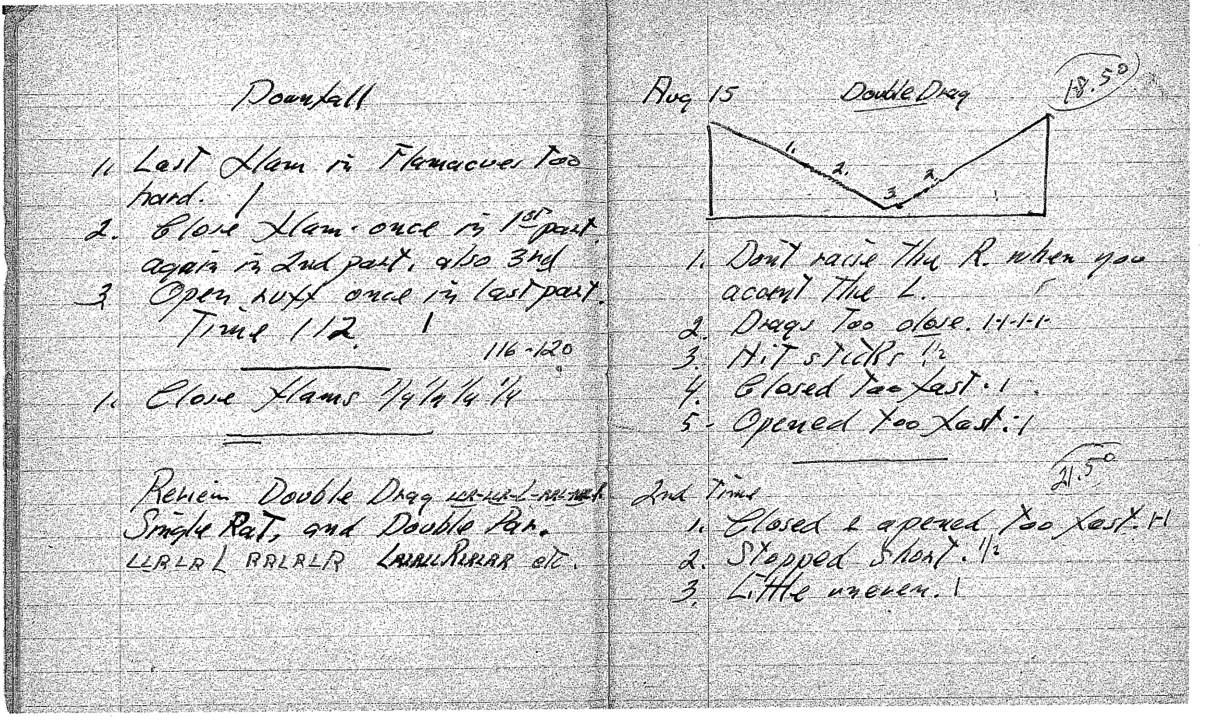 Downfall
1. Last flam in Flamacues too
hard. /
2. Close flam once in 1st part.
again in 2nd part, also 3rd
3 Open ruff once in last part.
Time 112. 1
116-120
1. Close flams 1/4 1/4 1/4 1/4
Review Double Drag
Single Rat, and Double Par.
LLRLRL RRLRLR etc.
Aug 15 Double Drag 18.50
1. 2. 3. 2.
1. Don't raise the R. when you
accent the L.
2. Drags too close. 1-1-1-1-
3. Hit sticks 1/2
4. Closed too fast. 1
5- Opened too fast. -1
21.50
2nd Time
1. Closed & opened too fast. 1-1
2. Stopped short. 1/2
3. Little uneven. 1